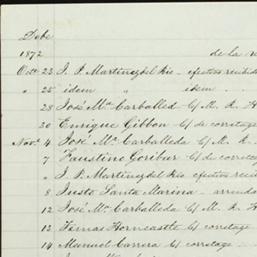 Debe
1872 de la
Octe 23 J. P. Martinez del Rio - efectos recibid
" 25 idem " idem
" 28 José Ma. Carballed C/ M. R. H
30 Enrique Gibbon C/ de corretage
Nove. 4 José Ma. Carballeda C/ M. R.
7 Faustino Goribar C/ de corretag
" J. P. Martinez del Rio efectos reci
8 Justo Santa Marina - arrenda
12 José Ma. Carballeda C/ M. R. H
13 Horncastle C/ corretage
14 Manuel Carrera C/ corretage